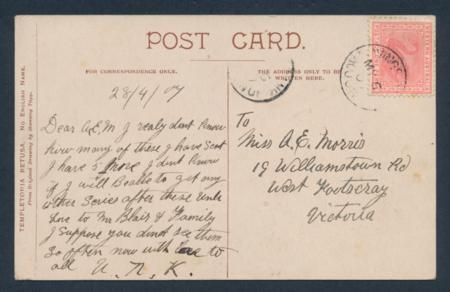 POST CARD.
FOR CORRESPONDENCE ONLY.
THE ADDRESS ONLY TO BE
WRITTEN HERE.
TEMPLETONIA RETUSA. No English Name.
From Original Drawing by
28/4/07
Dear A.E.M I realy dont Know
how many of these I have Sent
I have 5 more I dont Know
if I will Beable to get any
other Series after these
Love to Mr Blair & Family
I Suppose you dont see them
So often now with love to
all U. N. K.
To
Miss A. E. Morris
19 Williamstown Rd
West Footscray
Victoria